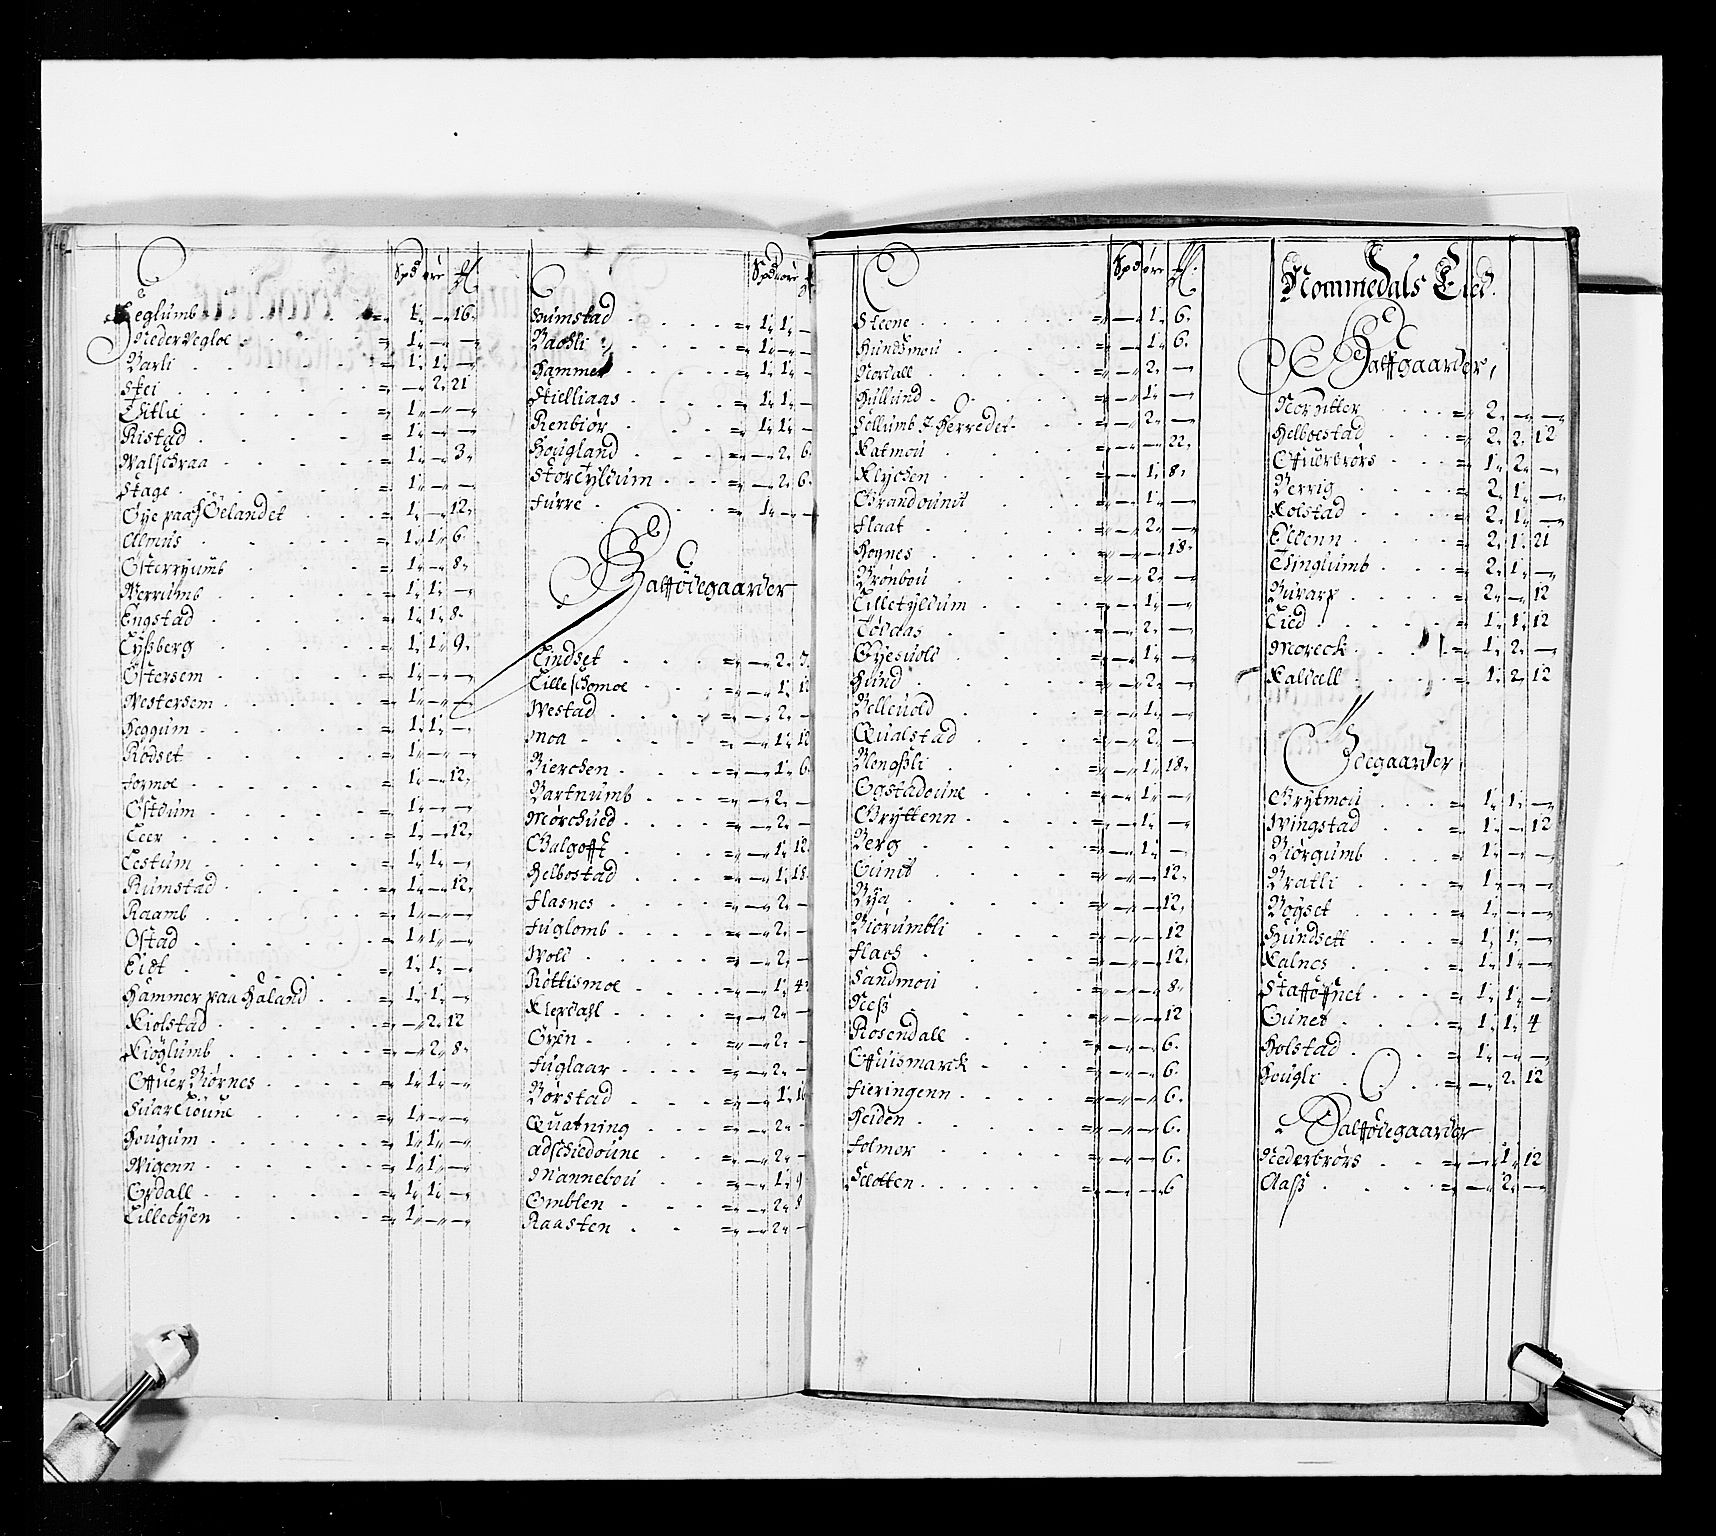 Spd ore ß.
Seglumb = 1 — 16.
Neder Vegloe = 1 — —
Barli = 1 1 —
Stei = — 2 21
Ristad = 1 — —
Walschraa = 1 — 3.
Stage = 1 — —
Øye paa Øelandet = 1 — 12.
Almus = 1 1 6.
Østerryumb = 1 — 8.
Werrumb = 1 1 —
Engstad = 1 1 8.
Lyßberg = 1 1 9.
Østersem = 1 — —
Westersem = 1 — —
Heggum = 1 1 —
Rødset = 1 — —
Formoe = 1 — 12.
Østdum = 1 — —
Leer = 1 — 12.
Lestum = 1 1 —
Rumstad = 1 — 12.
Raamb = 1 — —
Ostad = 1 1 —
Eidt = 1 1 —
Hammer paa Haland = 1 1 —
Kiolstad = — 2 12
Kiøglumb = — 2 8.
Offuer Biørnes = 1 1 —
Suarlioune = 1 — —
Hougum = 1 1 —
Wigenn = 1 1 —
Grdall = 1 1 —
Lilleøyen = 1 — —
Spd ore
Sumstad = 1 1 —
Bachli = 1 — —
Hammer = 1 1 —
Skielliaas = 1 1 —
Renbiør = 1 1 —
Hougland = — 2 6.
Storetyldum = — 2 6.
Furre = 1 — —
Halfødegaarder
Lindset = — 2 3.
Lilleschomoe = — 1 12
Westad = — 2 —
Moa = — 1 12
Bierchen = — 1 6
Bartnumb = — 2 —
Mørchued = — 2 —
Galgofft = — 1 12
Helbostad = — 1 18
Flasnes = — 2 —
Fuglomb = — 2 —
Woll = — 2 —
Røttismoe = — 1 4
Klepdahl = — 2 —
Øyen = — 2 —
Fuglaar = — 2 —
Børstad = — 1 16
Quatning = — 2 —
Adschiedoune = — 2 —
Mannebou = — 1 9
Emblen = — 2 8
Raasten = — 2 —
Spd ore ß.
Steene = — 1 6.
Hundsmou = — 1 6.
Nordall = — 2 —
Hillund = — 1 —
Sellumb J Herredet = — 2 —
Katmou = — — 22.
Klychen = — 1 8.
Grandounit = — 1 —
Flaat = — 2 —
Hognes = — — 18.
Brønbou = — 2 —
Lilletyldum = — 1 —
Tøldaas = — 2 —
Øyesuold = — 1 —
Hund = — 2 —
Belleuold = — 1 —
Qualstad = — 2 —
Blengßli = — 1 18.
Ogstadoune = — 1 —
Gryttenn = — 1 —
Berg = — 1 —
Lunit = — — 12.
Bya = — — 12.
Biørumbli = — — 12
Flach = — — 12.
Sandmou = — — 8.
Neß = — — 12
Rosendall = — — 6.
Offuismarck = — — 6.
Fieringenn = — — 6.
Heiden = — — 6.
Folmer = — — 6.
Slotten = — — 6
Nommedals Eied.
Halffgaarder,
Norzitter = 2 — —
Helboestad = 2 2 12
Offuerbrørs = 1 2 —
Berrig = 2 1 —
Kolstad = 2 1 —
Eldenn = 2 1 21
Thinglumb = 2 1 —
Buvarp = 2 — 12
Lied = 1 1 12
Moreck = 1 2 —
Kaldell = 1 2 12
Ødegaarder
Grytmou = 1 1 —
Wingstad = 1 — 12
Biørgumb = 1 — —
Bratli = 1 — —
Bogset = 1 — —
Hundsett = 1 1 —
Kalnes = 1 1 —
Staffsnet = 1 1 —
Lunet = 1 1 4
Holstad = 1 — —
Hougli = — 2 12
Halfødegaarder
Nederbrørs = — 1 12
Aaß = — 2 —